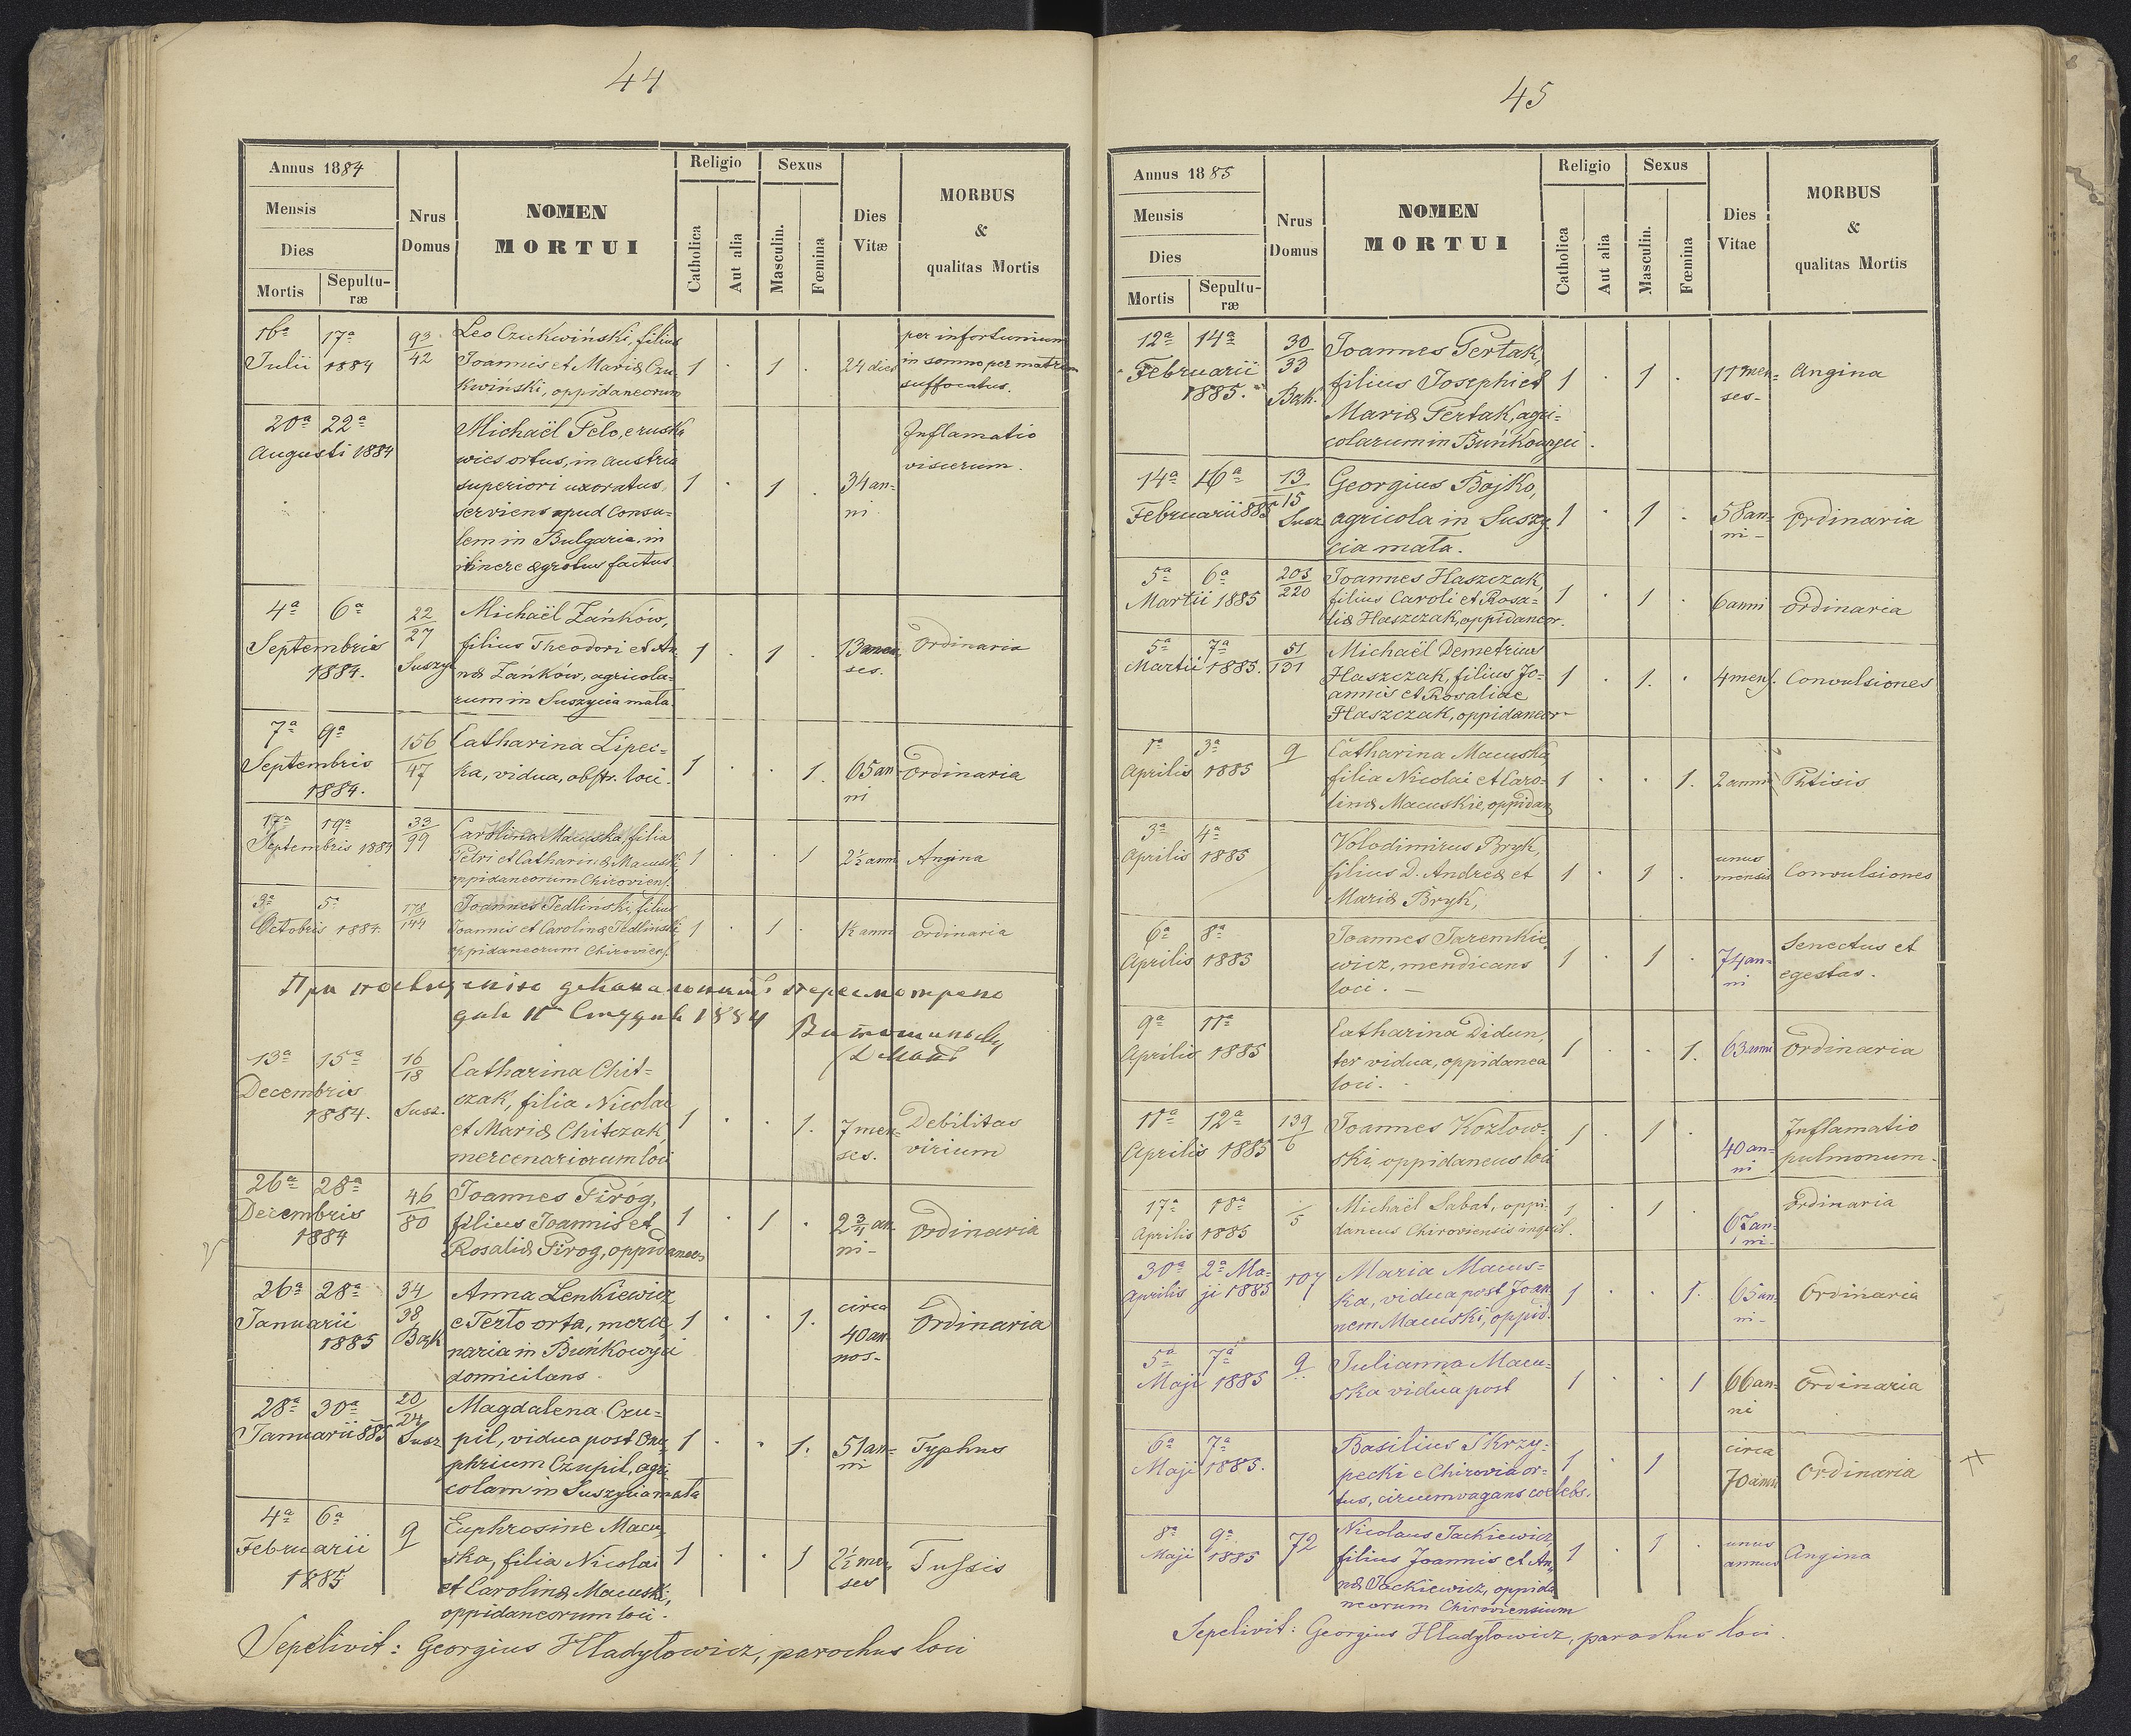 44
Annus 1884
Mensis
Dies
Mortis
Sepultu-
ræ
Nrus
Domus
NOMEN
MORTUI
Religio
Catholica
Aut alia
Sexus
Masculin.
Fœmina
Dies
Vitæ
MORBUS
&
qualitas Mortis
16a 17a
Julii 1884
93/42
Leo Czukwiński, filius
Joannis et Mariæ Czu-
kwiński, oppidaneorum
1 . 1 .
24 dies
per infortunium
in somno per matrem
suffocatus.
20a 22a
Augusti 1884
Michaël Felo, e
wies ortus, in Austria
superiori uxoratus,
serviens apud Consu-
lem in Bulgaria, in
itinere ægrotus factus
1 . 1 .
34 an-
ni
Inflamatio
viscerum.
4a 6a
Septembris
1884.
22/27
Suszyc
Michaël Zańków,
filius Theodori et An-
næ Zańków, agricola-
rum in Suszycia mała.
1 . 1 .
13 men-
ses.
Ordinaria
7a 9a
Septembris
1884.
156/47
Catharina Lipec-
ka, vidua, obstr. loci.
1 . . 1.
65 an-
ni
Ordinaria
17a 19a
Septembris 1884
33/99
Carolina Macuska, filia
Petri et Catharinæ Macuski,
oppidaneorum Chirovien.
1 . . 1
2½ anni
Angina
3a 5a
Octobris 1884.
178/144
Joannes Jedliński, filius
Joannis et Carolinæ Jedliński
oppidaneorum Chirovien.
1 . 1 .
1½ anni
ordinaria
дня 11 1884
13a 15a
Decembris
1884.
16/18
Susz.
Catharina Chit-
czak, filia Nicolai
et Mariæ Chitczak,
mercenariorum loci
1 . . 1.
7 men-
ses.
Debilitas
virium
26a 28a
Decembris
1884
46/80
Joannes Firóg,
filius Joannis et
Rosaliæ Firog, oppidaneor.
1 . 1 .
2¾ an-
ni -
Ordinaria
26a 28a
Januarii
1885
34/38
Bąk
Anna Lenkiewicz
e Terło orta, merce-
naria in Buńkowyci
domicilans.
1 . . 1.
circa
40 an-
nos-
Ordinaria
28a 30a
Januarii 885
20/24
Susz
Magdalena Czu-
pil, vidua post Onu-
phrium Czupil, agri-
colam in Suszycia mała
1 . . 1.
51 an-
ni
Typhus
4a 6a
Februarii
1885
9
Euphrosine Macu-
ska, filia Nicolai
et Carolinæ Macuski,
oppidaneorum loci.
1 . . 1
2½ men-
ses
Tussis
Sepelivit: Georgius Hładyłowicz, parochus loci
45
Annus 1885
Mensis
Dies
Mortis
Sepultu-
ræ
Nrus
Domus
NOMEN
MORTUI
Religio
Catholica
Aut alia
Sexus
Masculin.
Fœmina
Dies
Vitae
MORBUS
&
qualitas Mortis
12a 14a
Februarii
1885.
30/33
Bąk.
Joannes Pertak,
filius Josephi et
Mariæ Pertak, agri-
colarum in Buńkowyci.
1 . 1 .
11 men-
ses-
Angina
14a 16a
Februarii 885
13/15
Susz
Georgius Bojko,
agricola in Suszy-
cia mała.
1 . 1 .
58 an-
ni -
Ordinaria
5a 6a
Martii 1885
203/220
Joannes Haszczak,
filius Caroli et Rosa-
liæ Haszczak, oppidaneor.
1 . 1 .
6 anni
Ordinaria
5a 7a
Martii 1885.
51/131
Michaël Demetrius
Haszczak, filius Jo-
annis et Rosaliae
Haszczak, oppidaneor-
1 . 1. .
4 mens.
Convulsiones
1a 3a
Aprilis 1885
9
Catharina Macuska,
filia Nicolai et Caro-
linæ Macuskie, oppidan
1 . . 1.
2 anni
Phtisis
3a 4a
Aprilis 1885
Volodimirus Bryk,
filius D. Andreæ et
Mariæ Bryk,
1 . 1 .
unus
mensis
Convulsiones
6a 8a
Aprilis 1885
Joannes Jaremkie-
wicz, mendicans
loci. -
1 . 1 .
74 an-
ni
Senectus et
egestas.
9a 11a
Aprilis 1885
Catharina Didun,
ter vidua, oppidanea
loci.
1 . . 1.
63 anni
Ordinaria
11a 12a
Aprilis 1885
139/6
Joannes Kozłow-
ski, oppidaneus loci
1 . 1 .
40 an-
ni
Inflamatio
pulmonum.
17a 18a
Aprilis 1885
/5
Michaël Sabat, oppi-
daneus Chiroviensis inquil.
1 . 1 .
67 an-
ni-
Ordinaria
30a 2a Ma-
Aprilis ji 1885
107
Maria Macus-
ka, vidua post Joan-
nem Macuski, oppid.
1 . . 1.
65 an-
ni-
Ordinaria
5a 7a
Maji 1885
9
Julianna Macu-
ska vidua post
1 . . 1
66 an-
ni
Ordinaria
6a 7a
Maji 1885.
Basilius Skrzy-
pecki e Chirovia or-
tus, circumvagans coelebs.
1 . 1
circa
70 anni
Ordinaria
8a 9a
Maji 1885
72
Nicolaus Jackiewicz,
filius Joannis et An-
næ Jackiewicz, oppida-
neorum Chiroviensium
1 . 1 .
unus
annus
Angina
Sepelivit: Georgius Hładyłowicz, parochus loci.